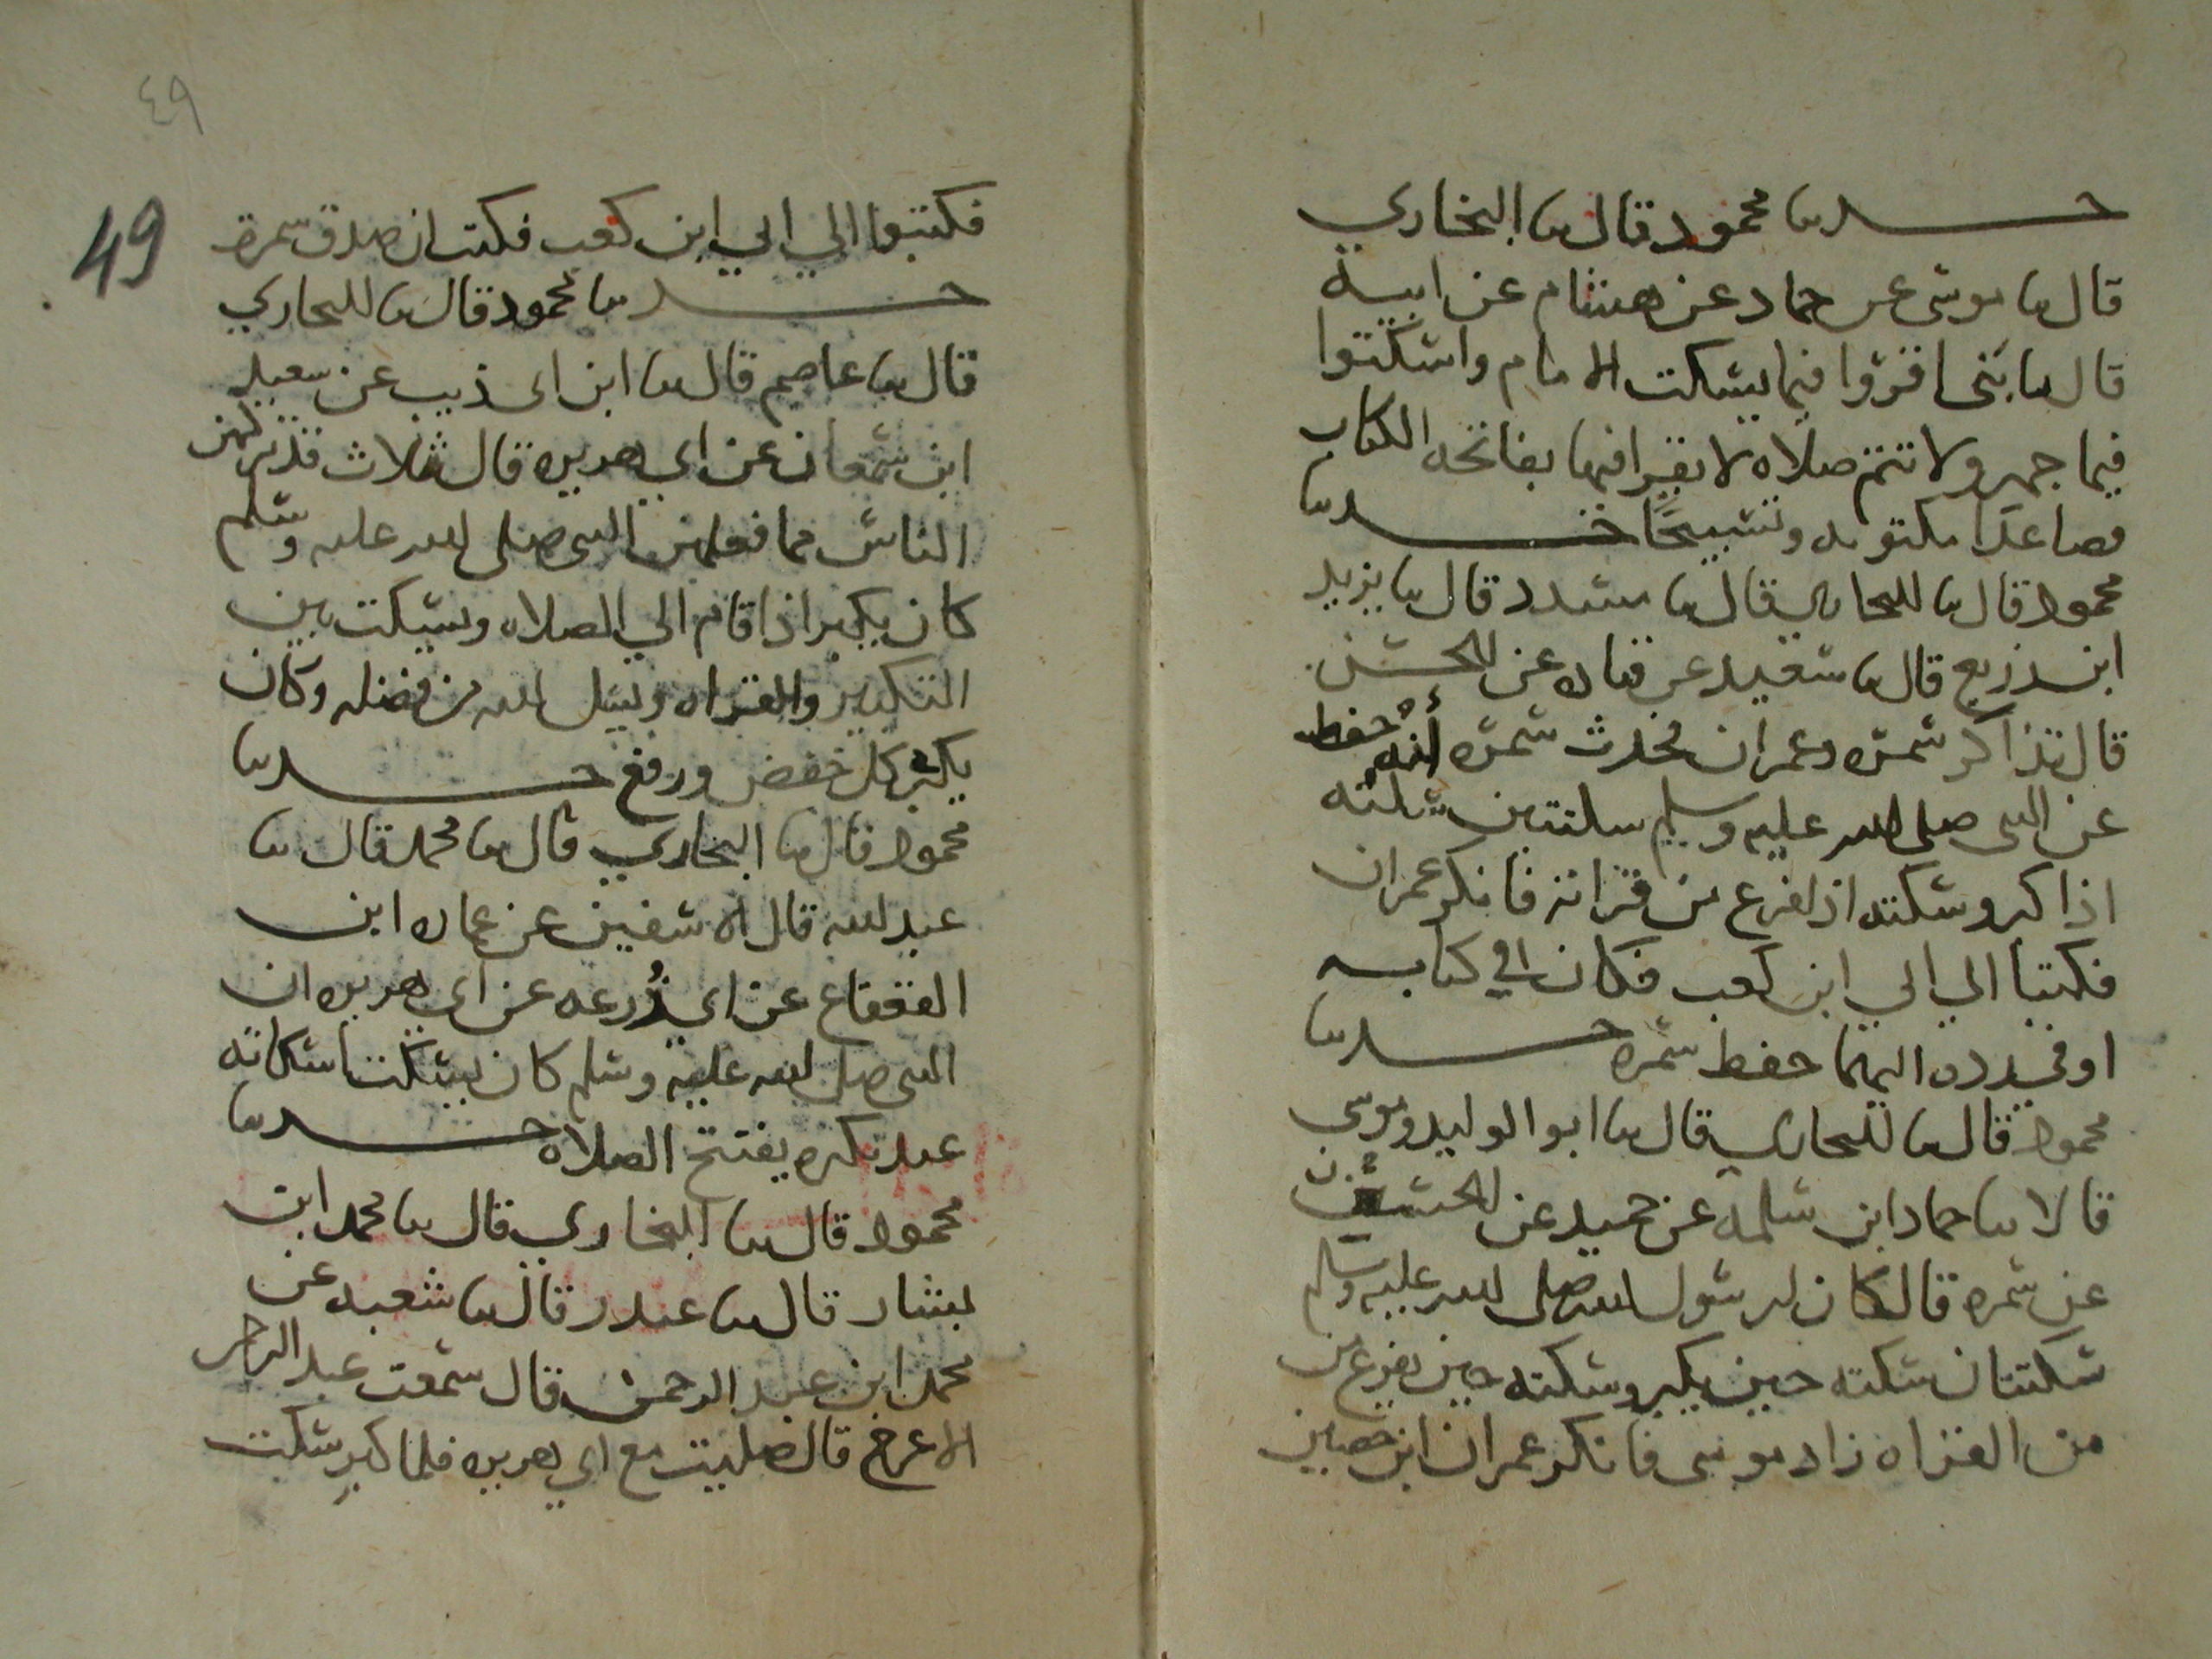 حدثنا محمود قال ثنا البخاري
قال ثنا موسى عن حماد عن هشام عن ابيه
قال يا بنى اقرؤا فيما يسكت الامام واسكتوا
فيما جهر ولا تتم صلاه لا يقرا فيها بفاتحه الكتاب
فصاعدا مكتوبه وتسبيحا حدثنا
محمود قال ثنا البخاري قال ثنا مسدد قال ثنا يزيد
ابن زريع قال ثنا سعيد عن قتاده عن الحسن
قال تذاكر سمره وعمران فحدث سمره أنه حفظ
عن النبى صلى الله عليه وسلم سكتتين سكته
اذا كبر وسكته اذا فرغ من قراته فانكر عمران
فكتبا الى ابي ابن كعب فكان في كتابه
او في رده اليهما حفظ سمره حدثنا
محمود قال ثنا البخاري قال ثنا ابو الوليد وموسى
قالا ثنا حماد ابن سلمه عن حميد عن الحسن
عن سمره قال كان لرسول الله صلى الله عليه وسلم
سكتتان سكته حين يكبر وسكته حين يفرغ من
من القراه زاد موسى فانكر عمران ابن حصين
٤٩
49
فكتبوا الي ابي ابن كعب فكتب ان صدق سمرة
حدثنا محمود قال ثنا البخاري
قال ثنا عاصم قال ثنا ابن ابى ذيب عن سعيد
ابن سمعان عن ابي هريره قال ثلاث قد تركهن
الناس مما فعلهن النبى صلى الله عليه وسلم
كان يكبر اذا قام الي الصلاه ويسكت بين
التكبير والقراه ويسل الله من فضله وكان
يكبر كل خفض ورفع حدثنا
محمود قال ثنا البخاري قال ثنا محمد قال ثنا
عبد الله قال انا سفين عن عماره ابن
القعقاع عن ابي زُرعه عن ابى هريره ان
النبى صلى الله عليه وسلم كان يسكت اسكاته
عند تكبره يفتتح الصلاه حدثنا
محمود قال ثنا البخاري قال ثنا محمد ابن
بشار قال ثنا غندر قال ثنا شعبه عن
محمد ابن عبد الرحمن قال سمعت عبد الرحمن
الاعرج قال صليت مع ابي هريره فلما كبر سكت